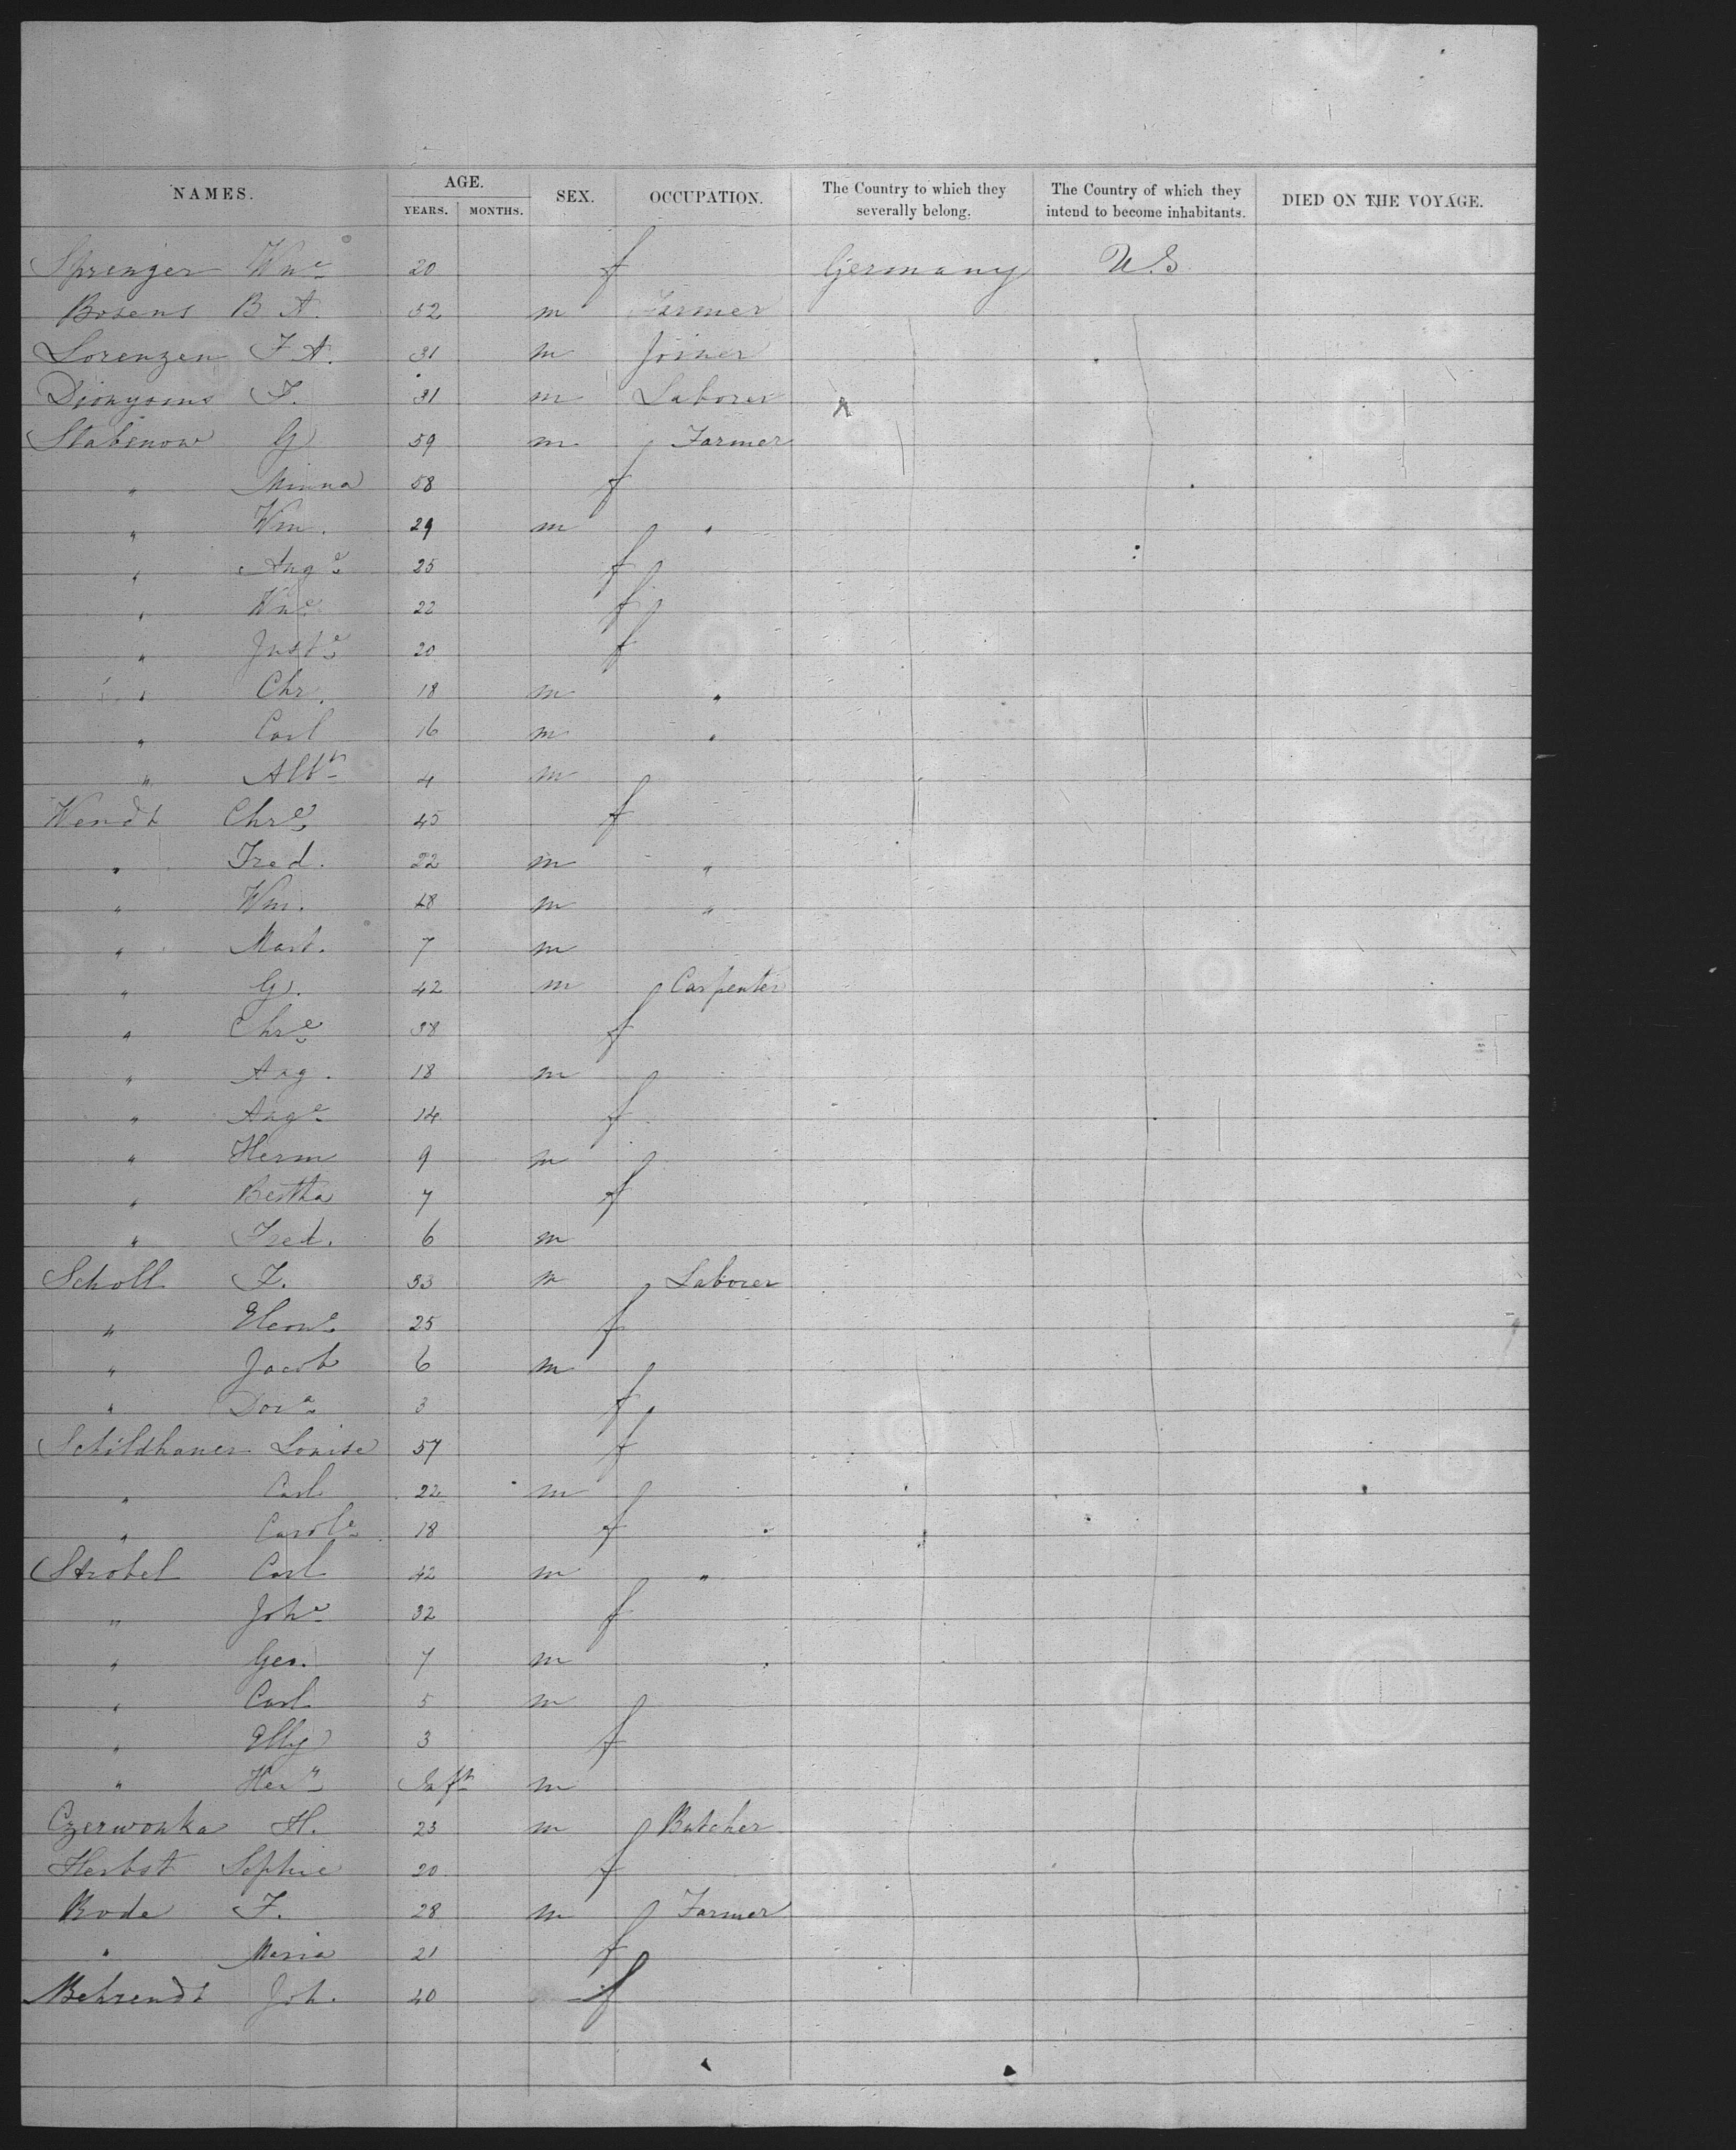 NAMES. AGE. SEX. OCCUPATION. The Country to which they severally belong. The Country of which they intend to become inhabitants. DIED ON THE VOYAGE.
YEARS. MONTHS.
Sprenger Wne 20 f Germany U.S
Bosens B A. 52 m Farmer
Lorenzen F. A. 31 m Joiner
Dionysius F. 31 m Laborer
Stabenow G 59 m Farmer
" Minna 58 f
" Wm. 29 m "
" Auge 25 f
" Wne 22 f
" Juste 20 f
" Chr. 18 m "
" Carl 16 m "
" Albt 4 m
Wendt Chre 45 f
" Fred. 22 m "
" Wm. 18 m "
" Mart. 7 m
" G. 42 m Carpenter
" Chre 38 f
" Aug. 18 m
" Auge 14 f
" Herm 9 m
" Bertha 7 f
" Fred. 6 m
Scholl F. 33 m Laborer
" 25 f
" Jacob 6 m
" Dora 3 f
Schildhauer Louise 57 f
" Carl 22 m
" Carole 18 f
Strobel Carl 42 m "
" Johe 32 f
" Geo. 7 m
" Carl 5 m
" Elly 3 f
" Hern Inft m
Czerwonka H. 23 m Butcher
Herbst Sophie 20 f
Bode F. 28 m Farmer
" Maria 21 f
Behrendt Joh. 40 f